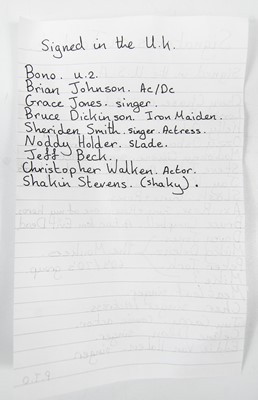 Signed in the U.K.
Bono. U.2.
Brian Johnson. Ac/Dc
Grace Jones. singer.
Bruce Dickinson. Iron Maiden.
Sheriden Smith. singer. Actress.
Noddy Holder. Slade.
Jeff Beck.
Christopher Walken. Actor.
Shakin Stevens. (Shaky).